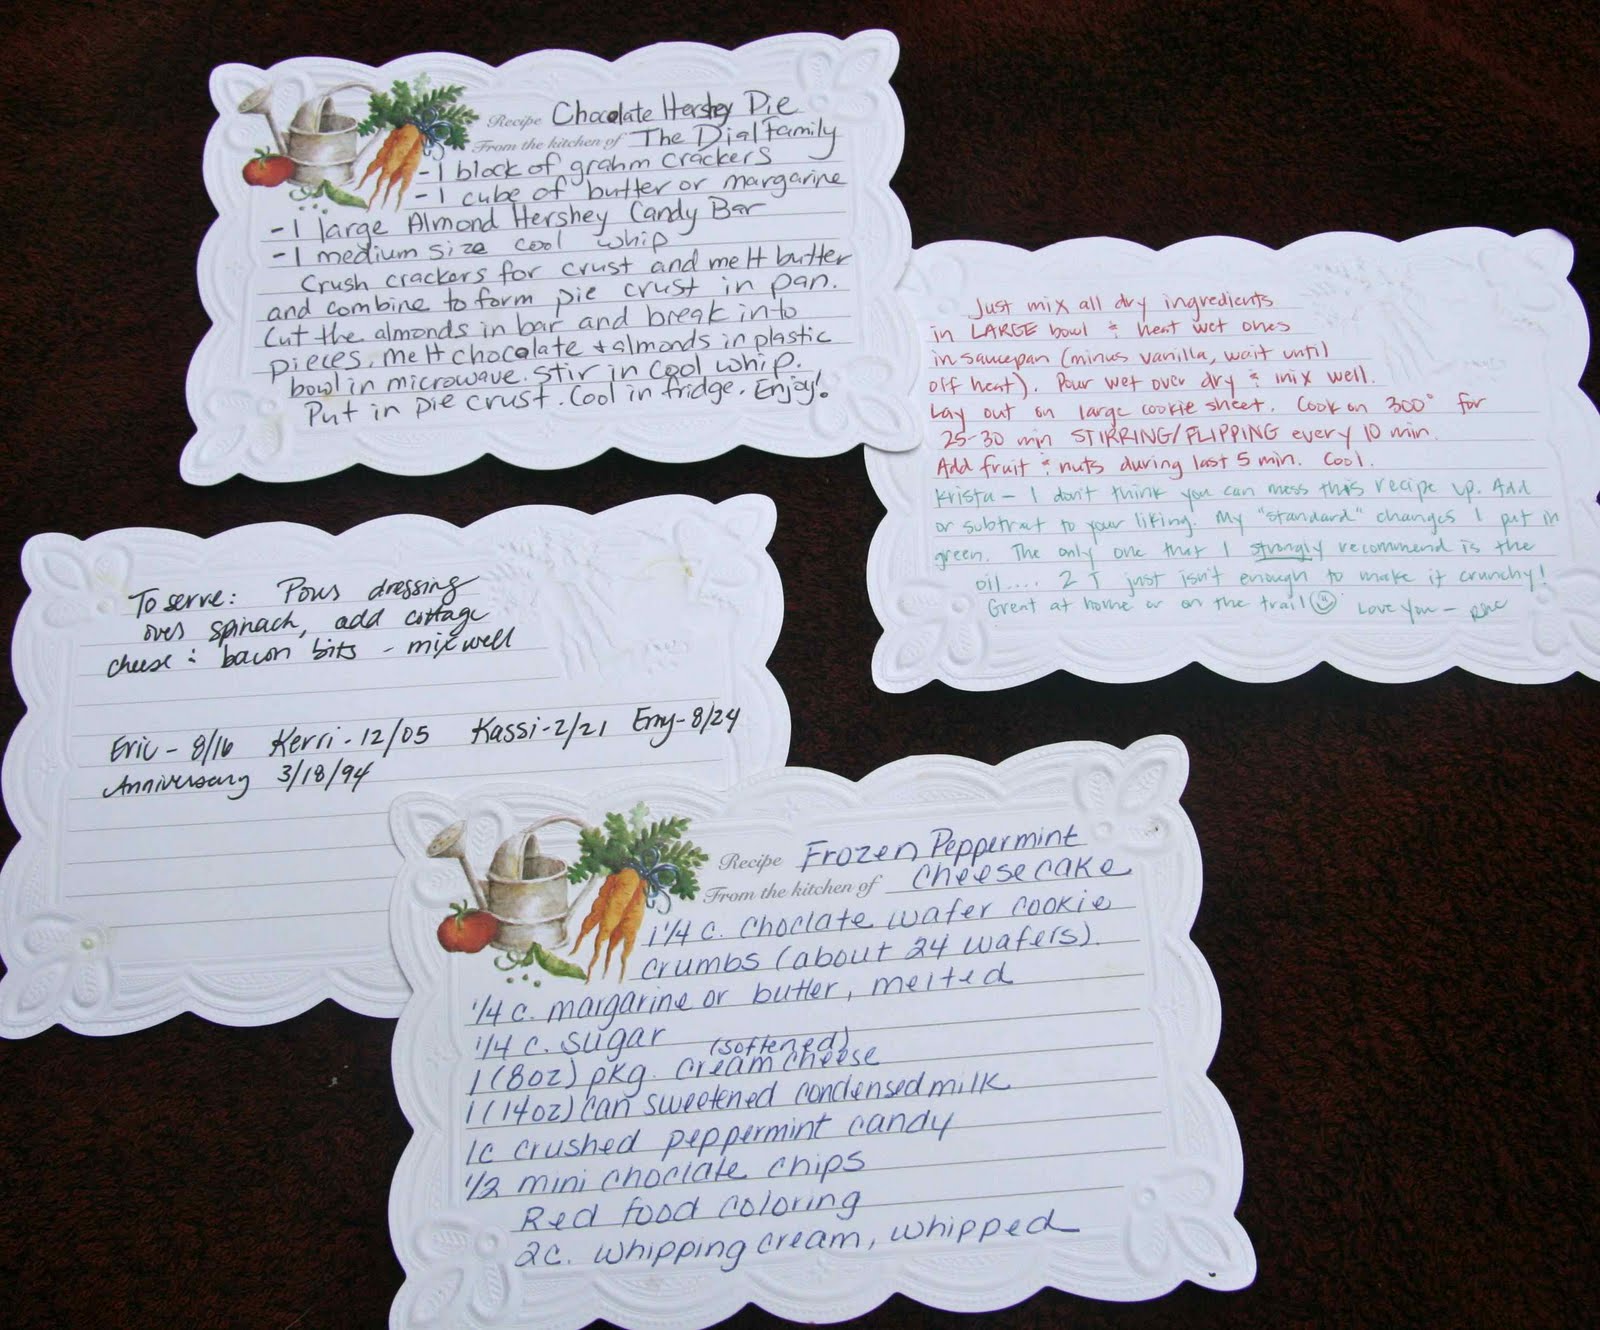 Recipe Chocolate Hershey Pie
From the kitchen of The Dial Family
-1 block of grahm crackers
-1 cube of butter or margarine
-1 large Almond Hershey Candy Bar
-1 medium size cool whip
Crush crackers for crust and melt butter
and combine to form pie crust in pan.
Cut the almonds in bar and break into
pieces. melt chocolate + almonds in plastic
bowl in microwave. Stir in cool whip.
Put in pie crust. Cool in fridge. Enjoy!
Just mix all dry ingredients
in LARGE bowl & heat wet ones
in saucepan (minus vanilla, wait until
off heat). Pour wet over dry & mix well.
Lay out on large cookie sheet. Cook on 300° for
25-30 min STIRRING/FLIPPING every 10 min.
Add fruit & nuts during last 5 min. Cool.
Krista - I don't think you can mess this recipe up. Add
or subtract to your liking. My "standard" changes I put in
green. The only one that I strongly recommend is the
oil.... 2 T just isn't enough to make it crunchy!
Great at home or on the trail Love You -
To serve: Pour dressing
over spinach, add cottage
cheese & bacon bits - mix well
Eric - 8/16 Kerri - 12/05 Kassi - 2/21 Emy - 8/24
Anniversary 3/18/94
Recipe Frozen Peppermint
From the kitchen of Cheesecake
1 1/4 c. choclate wafer cookie
crumbs (about 24 wafers).
1/4 c. margarine or butter, melted
1/4 c. sugar
(softened)
1 (8oz) pkg. cream cheese
1 (14oz) can sweetened condensed milk
1c crushed peppermint candy
1/2 mini choclate chips
Red food coloring
2c. whipping cream, whipped